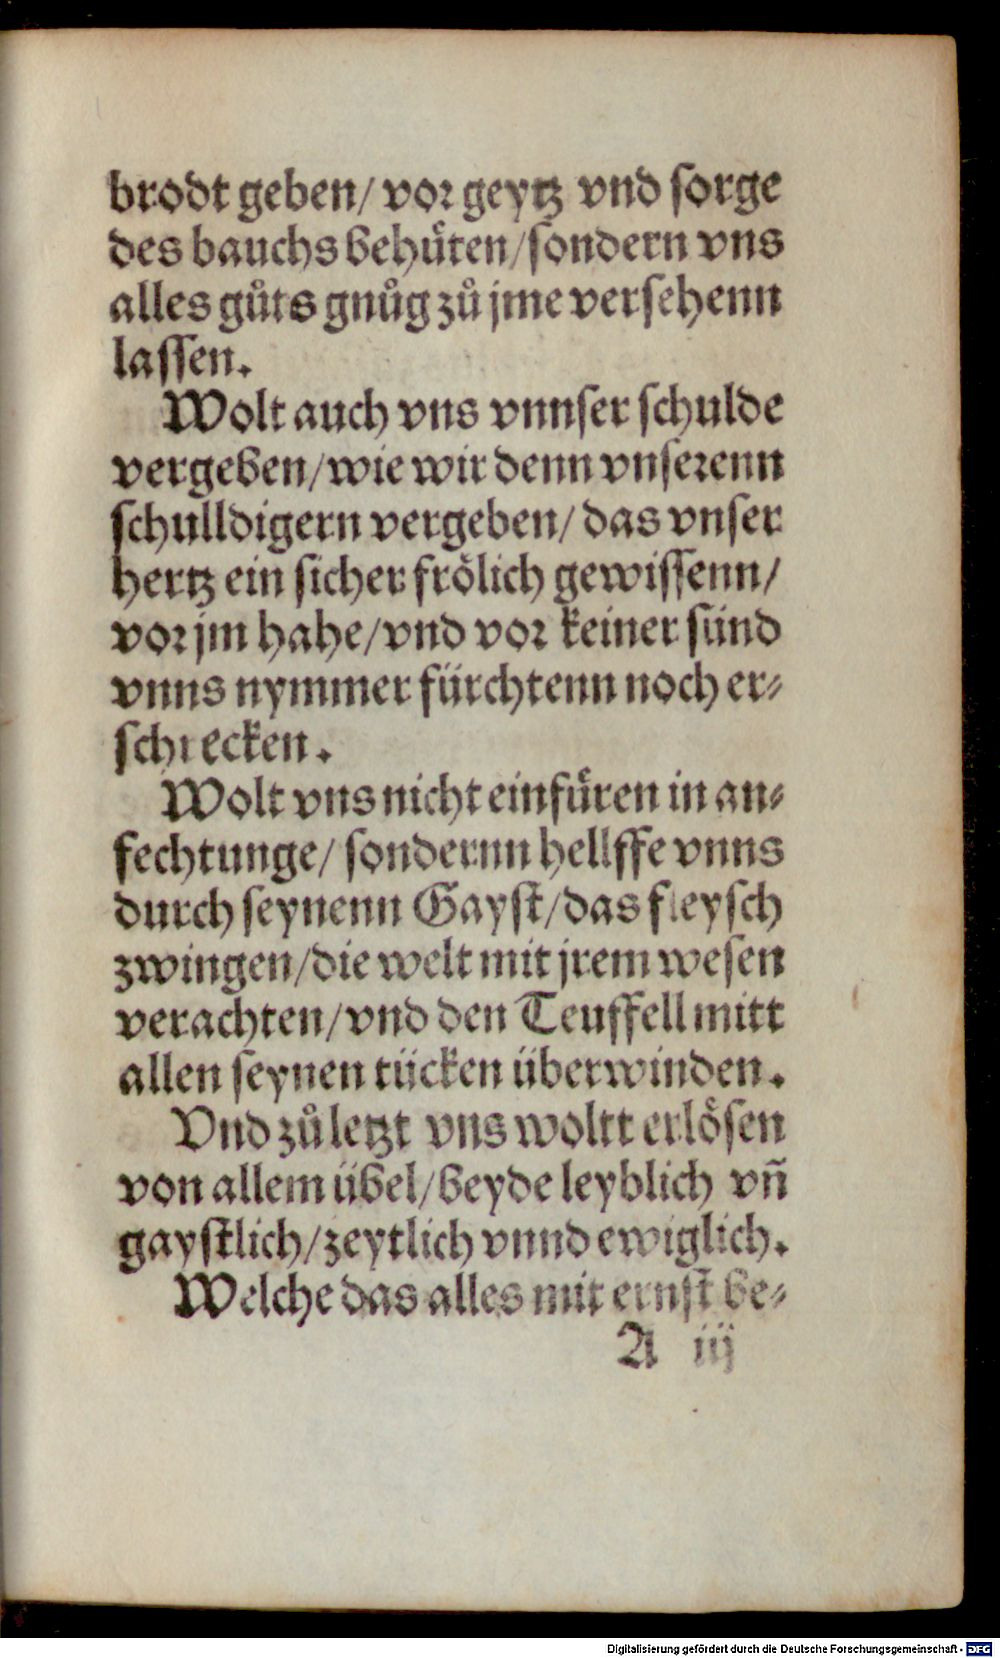 brodt geben/ vor geytz vnd sorge
des bauchs behuͤten/sondern vns
alles guͦts gnuͦg zuͦ jme versehenn
lassen.
Wolt auch vns vnnser schulde
vergeben/wie wir denn vnserenn
schulldigern vergeben/ das vnser
hertz ein sicher froͤlich gewissenn/
vor jm hahe/vnd vor keiner sünd
vnns nymmer fürchtenn noch er⸗
schrecken.
Wolt vns nicht einfuͤren in an⸗
fechtunge/ sondernn hellffe vnns
durch seynenn Gayst/das fleysch
zwingen/die welt mit jrem wesen
verachten/vnd den Teuffell mitt
allen seynen tücken überwinden.
Vnd zuͦ letzt vns woltt erloͤsen
von allem übel/beyde leyblich vñ
gaystlich/zeytlich vnnd ewiglich.
Welche das alles mit ernst be⸗
A iij
Digitalisierung gefördert durch die Deutsche Forschungsgemeinschaft - DFG